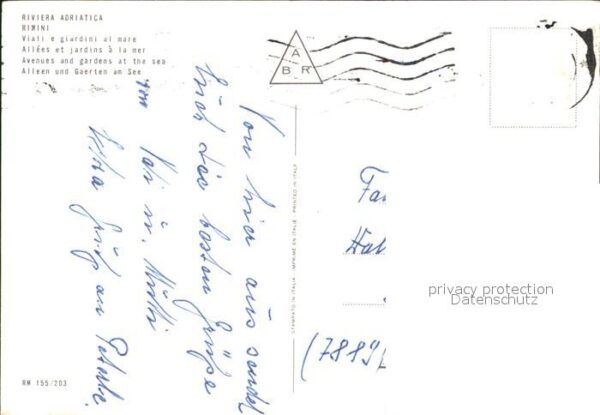 RIVIERA ADRIATICA
RIMINI
Viali e giardini al mare
Allées et jardins à la mer
Avenues and gardens at the sea
Alleen und Gaerten am See
A
B R
Von hier aus sendet
Euch die besten Grüße
von
Vati u. Mutti
Extra Gruß an Peterle.
STAMPATO IN ITALIA - IMPRIMÉ EN ITALIE - PRINTED IN ITALY
Fa
privacy protection
Datenschutz
RM 155/203